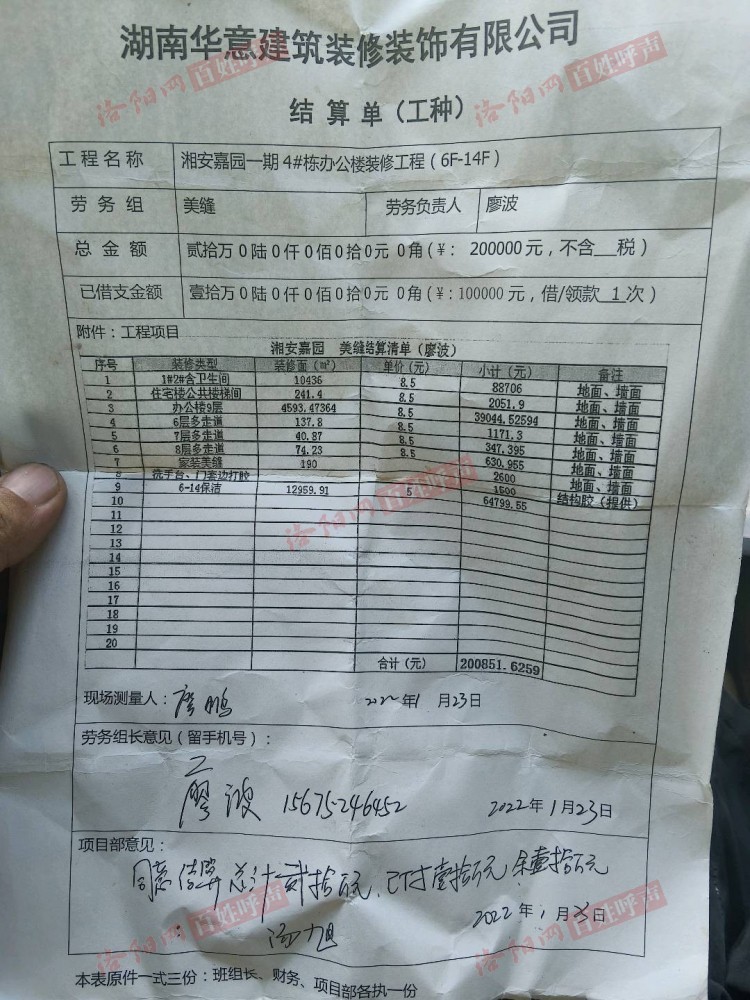 湖南华意建筑装修装饰有限公司
结算单（工种）
工程名称 湘安嘉园一期4#栋办公楼装修工程（6F-14F）
劳务组 美缝 劳务负责人 廖波
总金额 贰拾万0陆0仟0佰0拾0元0角（¥：200000元，不含__税）
已借支金额 壹拾万0陆0仟0佰0拾0元0角（¥：100000元，借/领款_1次）
附件：工程项目
湘安嘉园 美缝结算清单（廖波）
序号 装修类型 装修面（㎡） 单价（元） 小计（元） 备注
1 1#2#含卫生间 10436 8.5 88706 地面、墙面
2 住宅楼公共楼梯间 241.4 8.5 2051.9 地面、墙面
3 办公楼9层 4593.47364 8.5 39044.52594 地面、墙面
4 6层多走道 137.8 8.5 1171.3 地面、墙面
5 7层多走道 40.87 8.5 347.395 地面、墙面
6 8层多走道 74.23 8.5 630.955 地面、墙面
7 家装美缝 190 2600 地面、墙面
8 洗手台、门套边打胶 1500 结构胶（提供）
9 6-14保洁 12959.91 5 64799.55
10
11
12
13
14
15
16
17
18
19
20
合计（元） 200851.6259
现场测量人： 鹏 2022年1月23日
劳务组长意见（留手机号）：
廖波 15675246452 2022年1月23日
项目部意见：
同意结算总计贰拾万元，已付壹拾万元，余壹拾万元
2022年1月23日
汤旭
本表原件一式三份：班组长、财务、项目部各执一份
洛阳网 百姓呼声
洛阳网 百姓呼声
洛阳网 百姓呼声
洛阳网 百姓呼声
洛阳网 百姓呼声